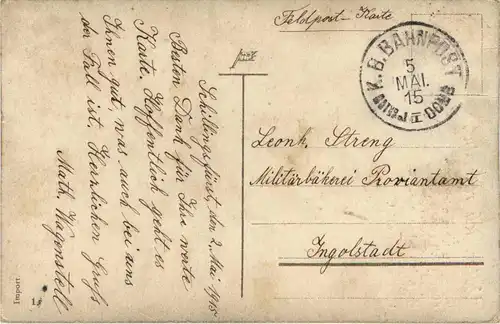 Feldpost-Karte
K.B. BAHNPOST
5
MAI.
15
II
Schillingsfürst, den 2. Mai 1915
Besten Dank für Ihre werte
Karte. Hoffentlich geht es
Ihnen gut, was auch bei uns
der Fall ist. Herzlichen Gruß
Math. Wagenstell
Leonh. Streng
Militärbäkerei Proviantamt
Ingolstadt
Import